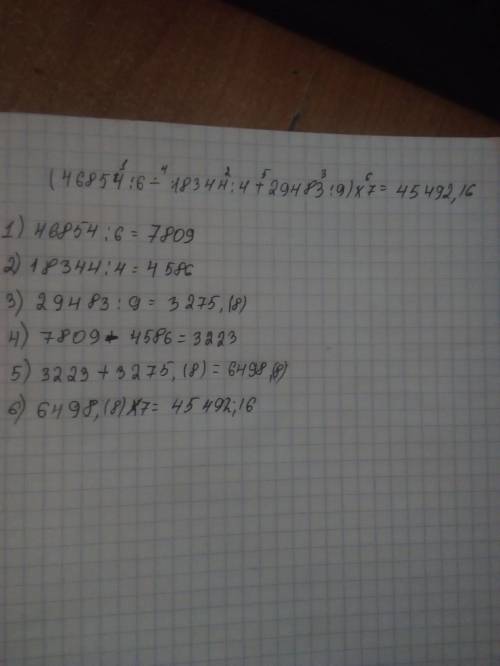 (46854:6-18344:4+29483:9)x7=45492,16
1) 46854:6=7809
2) 18344:4=4586
3) 29483:9=3275,(8)
4) 7809-4586=3223
5) 3223+3275,(8)=6498,(8)
6) 6498,(8)x7=45492,16